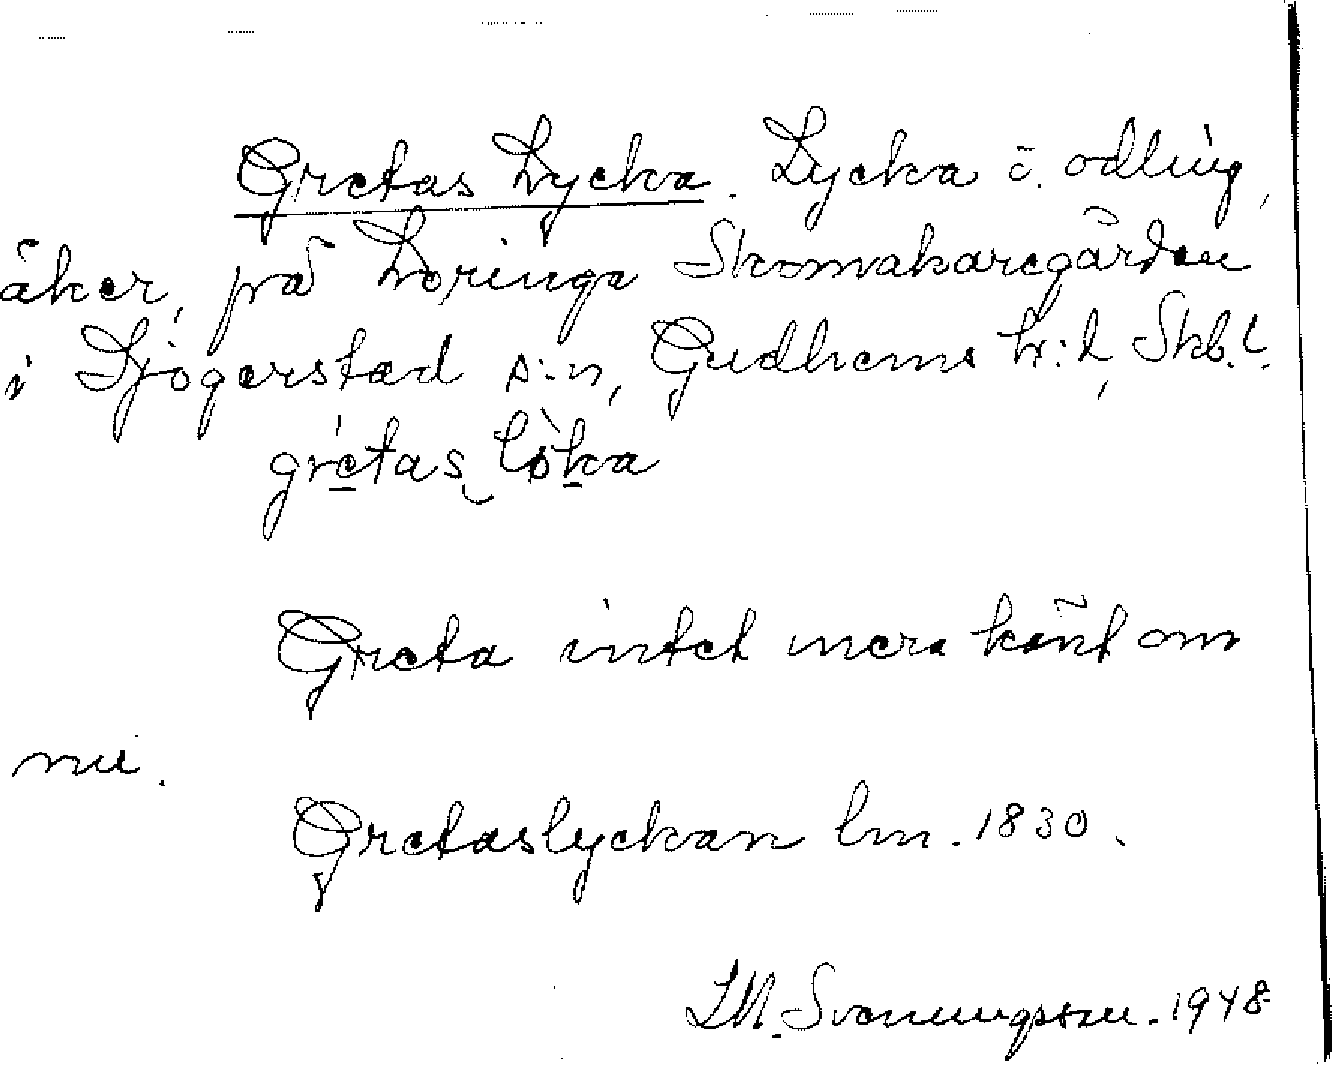 Gretas Lycka. Lycka ö. odling,
åker, på Loringa Skomakaregården
i Sjögerstad s:n, Gudhems h:d, Skb.l.
gretas löka
Greta intet mera känt om
nu.
Gretaslyckan lm. 1830.
LM. Svenungsson. 1948